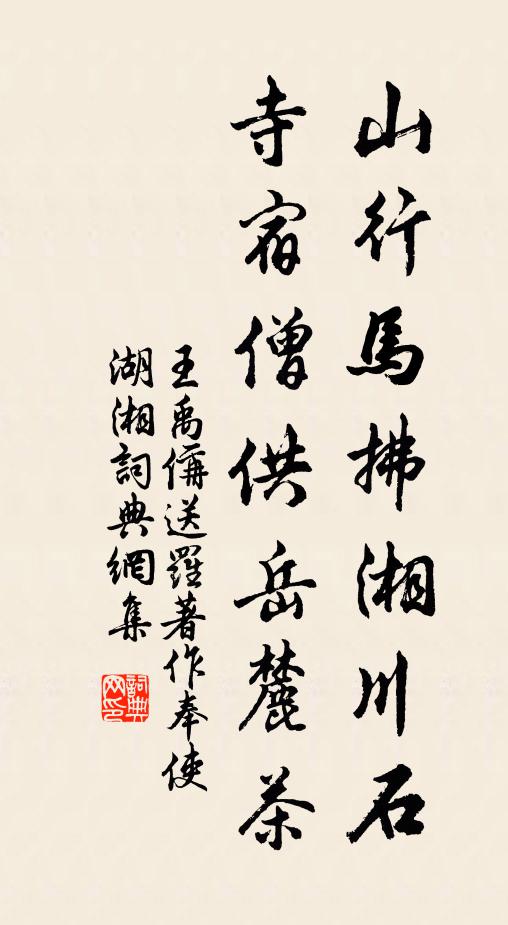 山行馬拂湘川石
寺宿僧供岳麓茶
王禹偁送羅著作奉使
湖湘詞典網集
詞典
网印